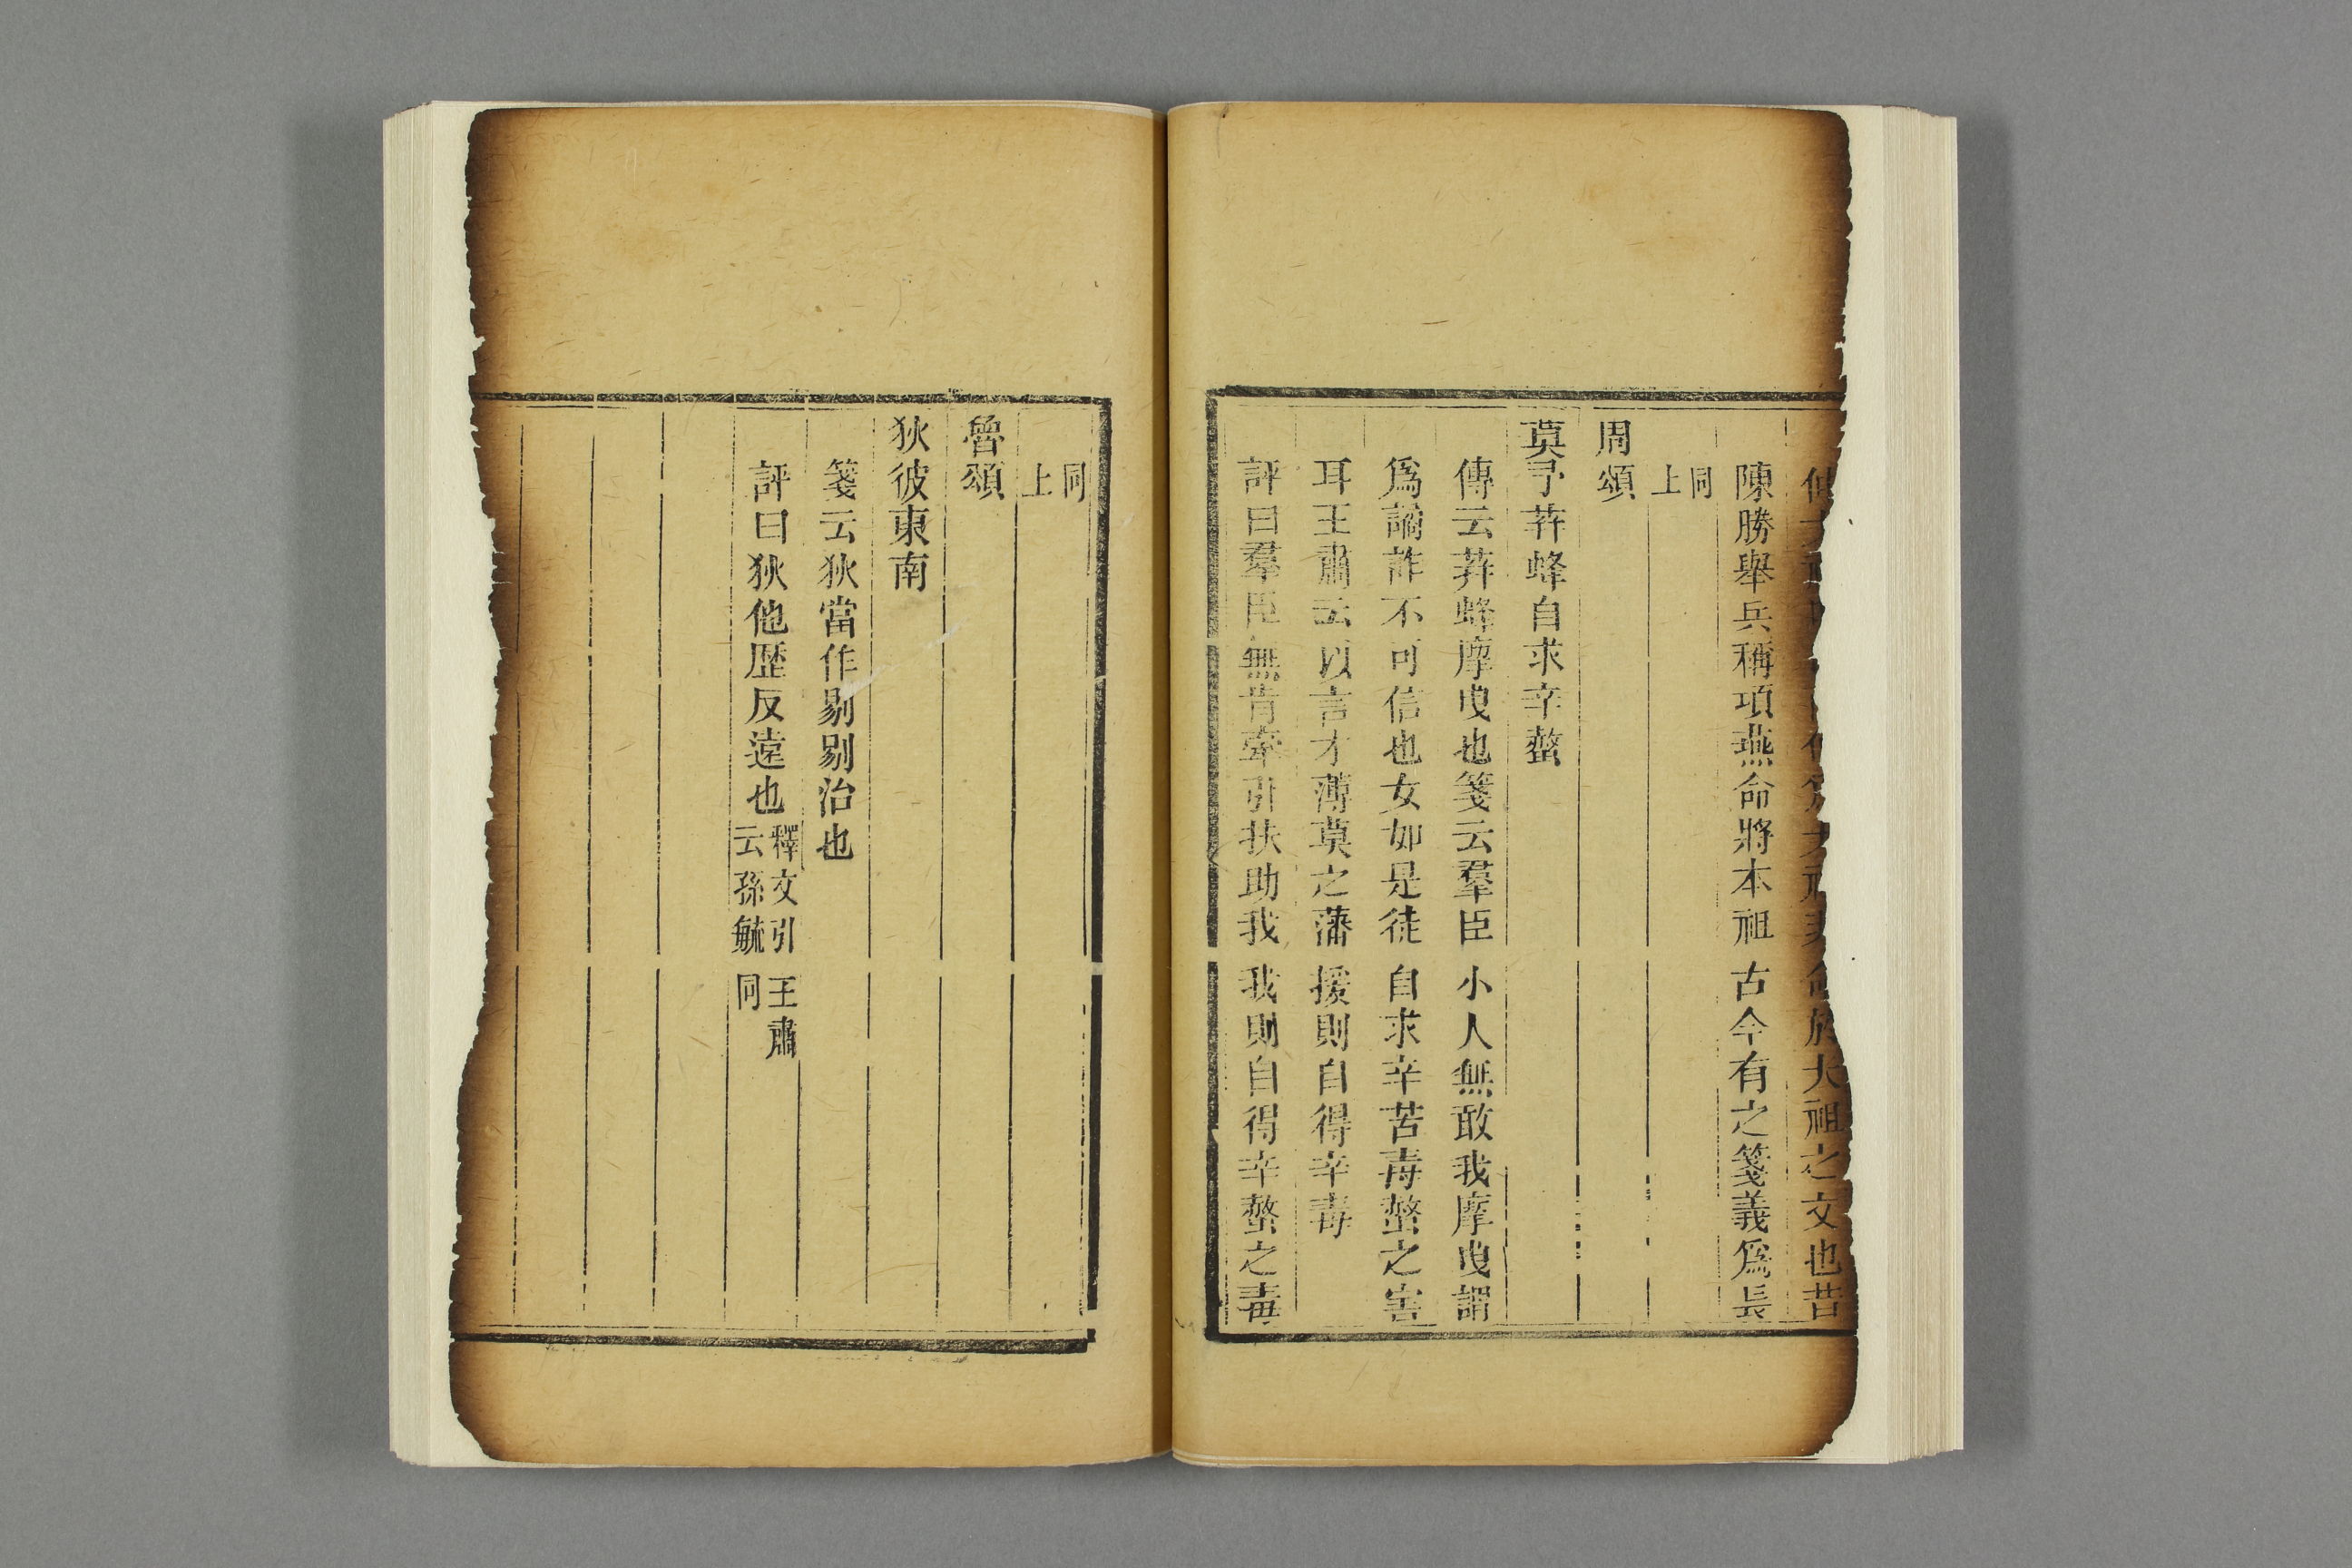 於大祖之文也昔
陳勝舉兵稱項燕命將本祖古今有之箋義爲長
同上
周頌
莫予荓蜂自求辛螫
傳云荓蜂摩曳也箋云羣臣小人無敢我摩曳謂
爲譎詐不可信也女如是徒自求辛苦毒螫之害
耳王肅云以言才薄莫之藩援則自得辛毒
評曰羣臣無肯牽引扶助我我則自得辛螫之毒
同上
魯頌
狄彼東南
箋云狄當作剔剔治也
評曰狄他歴反遠也釋文引王肅
云孫毓同